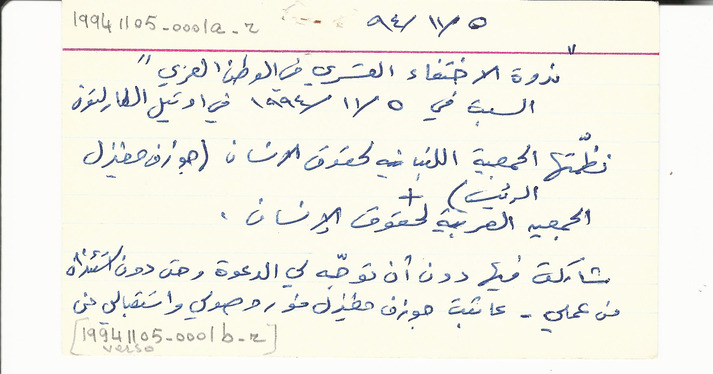 19941105-0001a-r
٩٤/١١/٥
"ندوة الاختفاء القسري في الوطن العربي"
السبت في ١٩٩٤/١١/٥ في اوتيل الكارلتون
نظّمتها الجمعية اللبنانية لحقوق الانسان (جوزف مغيزل
الرئيس) +
الجمعيه العربية لحقوق الإنسان.
شاركت فيها دون أن توجّه لي الدعوة وحتى دون استئذان
من عملي - عاتبت جوزف مغيزل فور وصولي واستقبالي من
[19941105-0001b-r]
verso